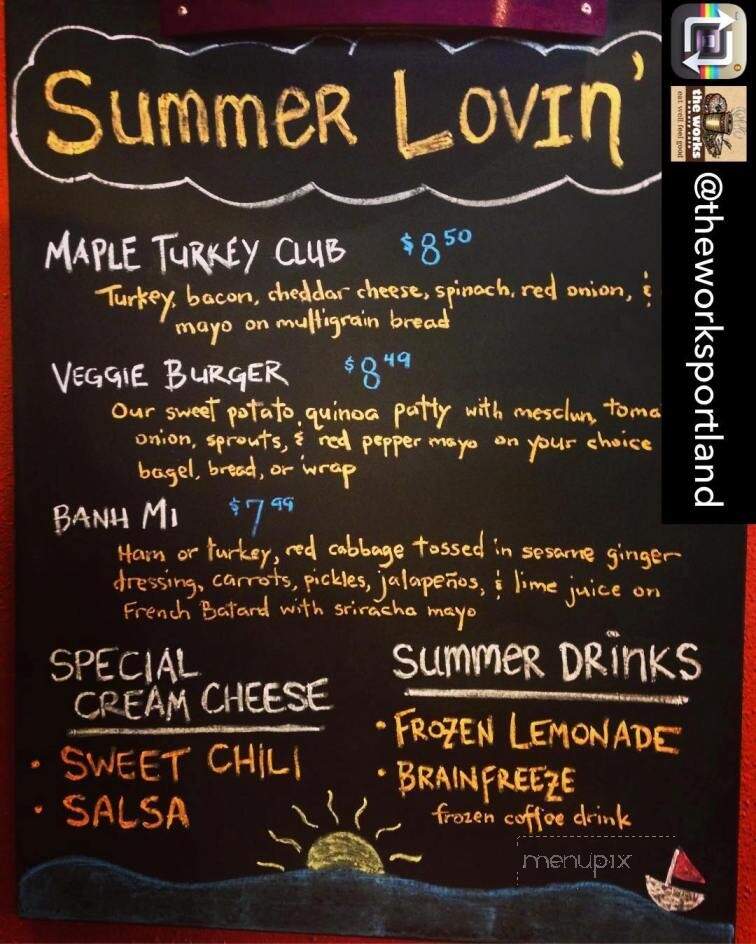 Summer Lovin'
MAPLE TURKEY CLUB $8.50
Turkey, bacon, cheddar cheese, spinach, red onion, &
mayo on multigrain bread
VEGGIE BURGER $8.49
Our sweet potato, quinoa patty with mesclun, toma
onion, sprouts, & red pepper mayo on your choice
bagel, bread, or wrap
BANH MI $7.99
Ham or turkey, red cabbage tossed in sesame ginger
dressing, carrots, pickles, jalapeños, & lime juice on
French Batard with sriracha mayo
SPECIAL
CREAM CHEESE
• SWEET CHILI
• SALSA
SUMMER DRINKS
• FROZEN LEMONADE
• BRAINFREEZE
frozen coffee drink
menupix
the works
eat well feel good
@theworksportland